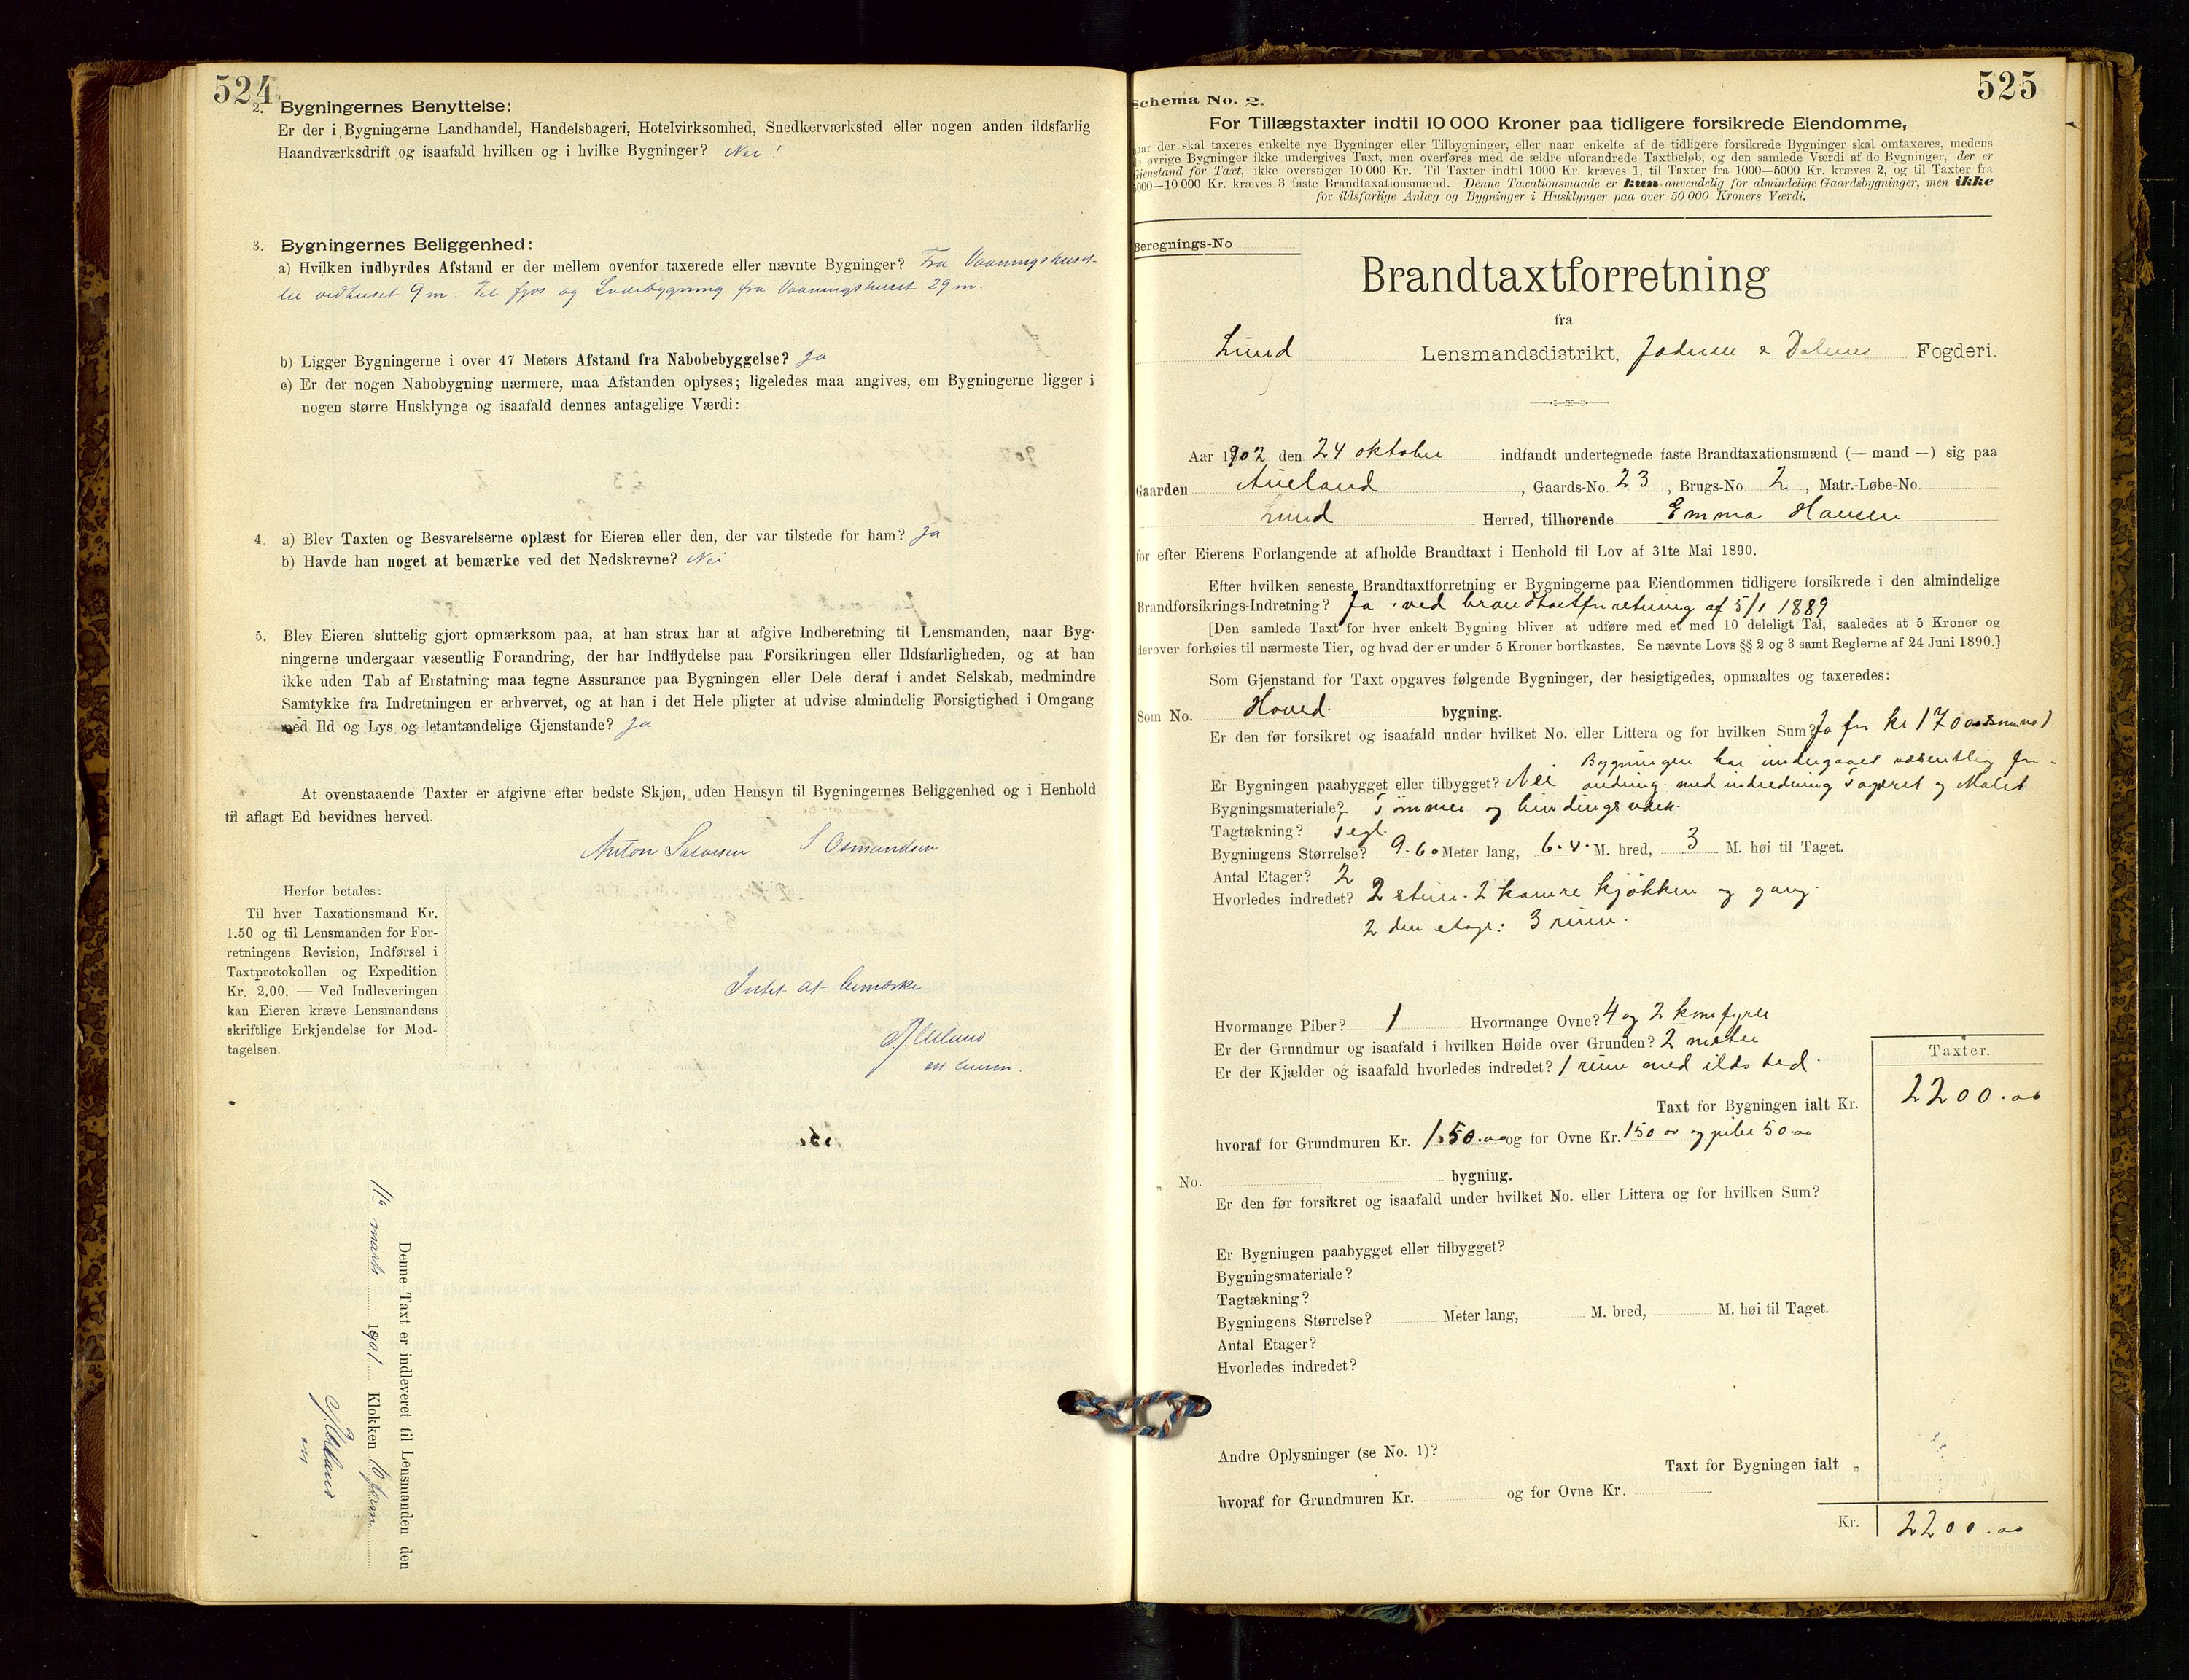 524
2. Bygningernes Benyttelse:
Er der i Bygningerne Landhandel, Handelsbageri, Hotelvirksomhed, Snedkerværksted eller nogen anden ildsfarlig
Haandværksdrift og isaafald hvilken og i hvilke Bygninger? Nei!
3. Bygningernes Beliggenhed:
a) Hvilken indbyrdes Afstand er der mellem ovenfor taxerede eller nævnte Bygninger? Fra Vaaningshuset
til vedhuset 9 m. Til fjøs og Ladebygning fra Vaaningshuset 29 m.
b) Ligger Bygningerne i over 47 Meters Afstand fra Nabobebyggelse? Ja
c) Er der nogen Nabobygning nærmere, maa Afstanden oplyses; ligeledes maa angives, om Bygningerne ligger i
nogen større Husklynge og isaafald dennes antagelige Værdi:
4. a) Blev Taxten og Besvarelserne oplæst for Eieren eller den, der var tilstede for ham? Ja
b) Havde han noget at bemærke ved det Nedskrevne? Nei
5. Blev Eieren sluttelig gjort opmærksom paa, at han strax har at afgive Indberetning til Lensmanden, naar Byg-
ningerne undergaar væsentlig Forandring, der har Indflydelse paa Forsikringen eller Ildsfarligheden, og at han
ikke uden Tab af Erstatning maa tegne Assurance paa Bygningen eller Dele deraf i andet Selskab, medmindre
Samtykke fra Indretningen er erhvervet, og at han i det Hele pligter at udvise almindelig Forsigtighed i Omgang
med Ild og Lys og letantændelige Gjenstande? Ja
At ovenstaaende Taxter er afgivne efter bedste Skjøn, uden Hensyn til Bygningernes Beliggenhed og i Henhold
til aflagt Ed bevidnes herved.
Anton Salvesen S Osmundsen
Herfor betales:
Til hver Taxationsmand Kr.
1.50 og til Lensmanden for For-
retningens Revision, Indførsel i
Taxtprotokollen og Expedition
Kr. 2.00. — Ved Indleveringen
kan Eieren kræve Lensmandens
skriftlige Erkjendelse for Mod-
tagelsen.
Intet at bemærke
Denne Taxt er indleveret til Lensmanden den
11te marts 1901 Klokken 10 form
525
Schema No. 2.
For Tillægstaxter indtil 10 000 Kroner paa tidligere forsikrede Eiendomme,
naar der skal taxeres enkelte nye Bygninger eller Tilbygninger, eller naar enkelte af de tidligere forsikrede Bygninger skal omtaxeres, medens
de øvrige Bygninger ikke undergives Taxt, men overføres med de ældre uforandrede Taxtbeløb, og den samlede Værdi af de Bygninger, der er
Gjenstand for Taxt, ikke overstiger 10 000 Kr. Til Taxter indtil 1000 Kr. kræves 1, til Taxter fra 1000—5000 Kr. kræves 2, og til Taxter fra
5000—10 000 Kr. kræves 3 faste Brandtaxationsmænd. Denne Taxationsmaade er kun anvendelig for almindelige Gaardsbygninger, men ikke
for ildsfarlige Anlæg og Bygninger i Husklynger paa over 50 000 Kroners Værdi.
Beregnings-No
Brandtaxtforretning
fra
Lund Lensmandsdistrikt, Jæderen & Dalernes Fogderi.
Aar 1902 den 24 oktober indfandt undertegnede faste Brandtaxationsmænd (— mand —) sig paa
Gaarden Aueland, Gaards-No. 23, Brugs-No 2, Matr.-Løbe-No.
Lund Herred, tilhørende Emma Hansen
for efter Eierens Forlangende at afholde Brandtaxt i Henhold til Lov af 31te Mai 1890.
Efter hvilken seneste Brandtaxtforretning er Bygningerne paa Eiendommen tidligere forsikrede i den almindelige
Brandforsikrings-Indretning? Ja ved brandtaxtforretning af 5/1 1889
[Den samlede Taxt for hver enkelt Bygning bliver at udføre med et med 10 deleligt Tal, saaledes at 5 Kroner og
derover forhøies til nærmeste Tier, og hvad der er under 5 Kroner bortkastes. Se nævnte Lovs §§ 2 og 3 samt Reglerne af 24 Juni 1890.]
Som Gjenstand for Taxt opgaves følgende Bygninger, der besigtigedes, opmaaltes og taxeredes:
Som No. Hoved bygning.
Er den før forsikret og isaafald under hvilket No. eller Littera og for hvilken Sum? Ja for kr 1700
Bygningen har undergaaet væsentlig for-
Er Bygningen paabygget eller tilbygget? Nei andring med indredning Taperet og Malet
Bygningsmateriale? Tømmer og bindingsværk.
Tagtækning? Tegl.
Bygningens Størrelse? 9.60 Meter lang, 6.4. M. bred, 3 M. høi til Taget.
Antal Etager? 2
Hvorledes indredet? 2 stuer. 2 kamre kjøkken og gang.
2 den etage: 3 rum.
Hvormange Piber? 1 Hvormange Ovne? 4 og 2 komfyrer
Er der Grundmur og isaafald i hvilken Høide over Grunden? 2 meter
Er der Kjælder og isaafald hvorledes indredet? 1 rum med ildsted.
Taxter.
Taxt for Bygningen ialt Kr. 2200.00
hvoraf for Grundmuren Kr. 150.00 og for Ovne Kr. 150 00 og pibe 50.00
„ No. bygning.
Er den før forsikret og isaafald under hvilket No. eller Littera og for hvilken Sum?
Er Bygningen paabygget eller tilbygget?
Bygningsmateriale?
Tagtækning?
Bygningens Størrelse? Meter lang, M. bred, M. høi til Taget.
Antal Etager?
Hvorledes indredet?
Andre Oplysninger (se No. 1)?
Taxt for Bygningen ialt „
hvoraf for Grundmuren Kr. og for Ovne Kr.
Kr. 2200.00